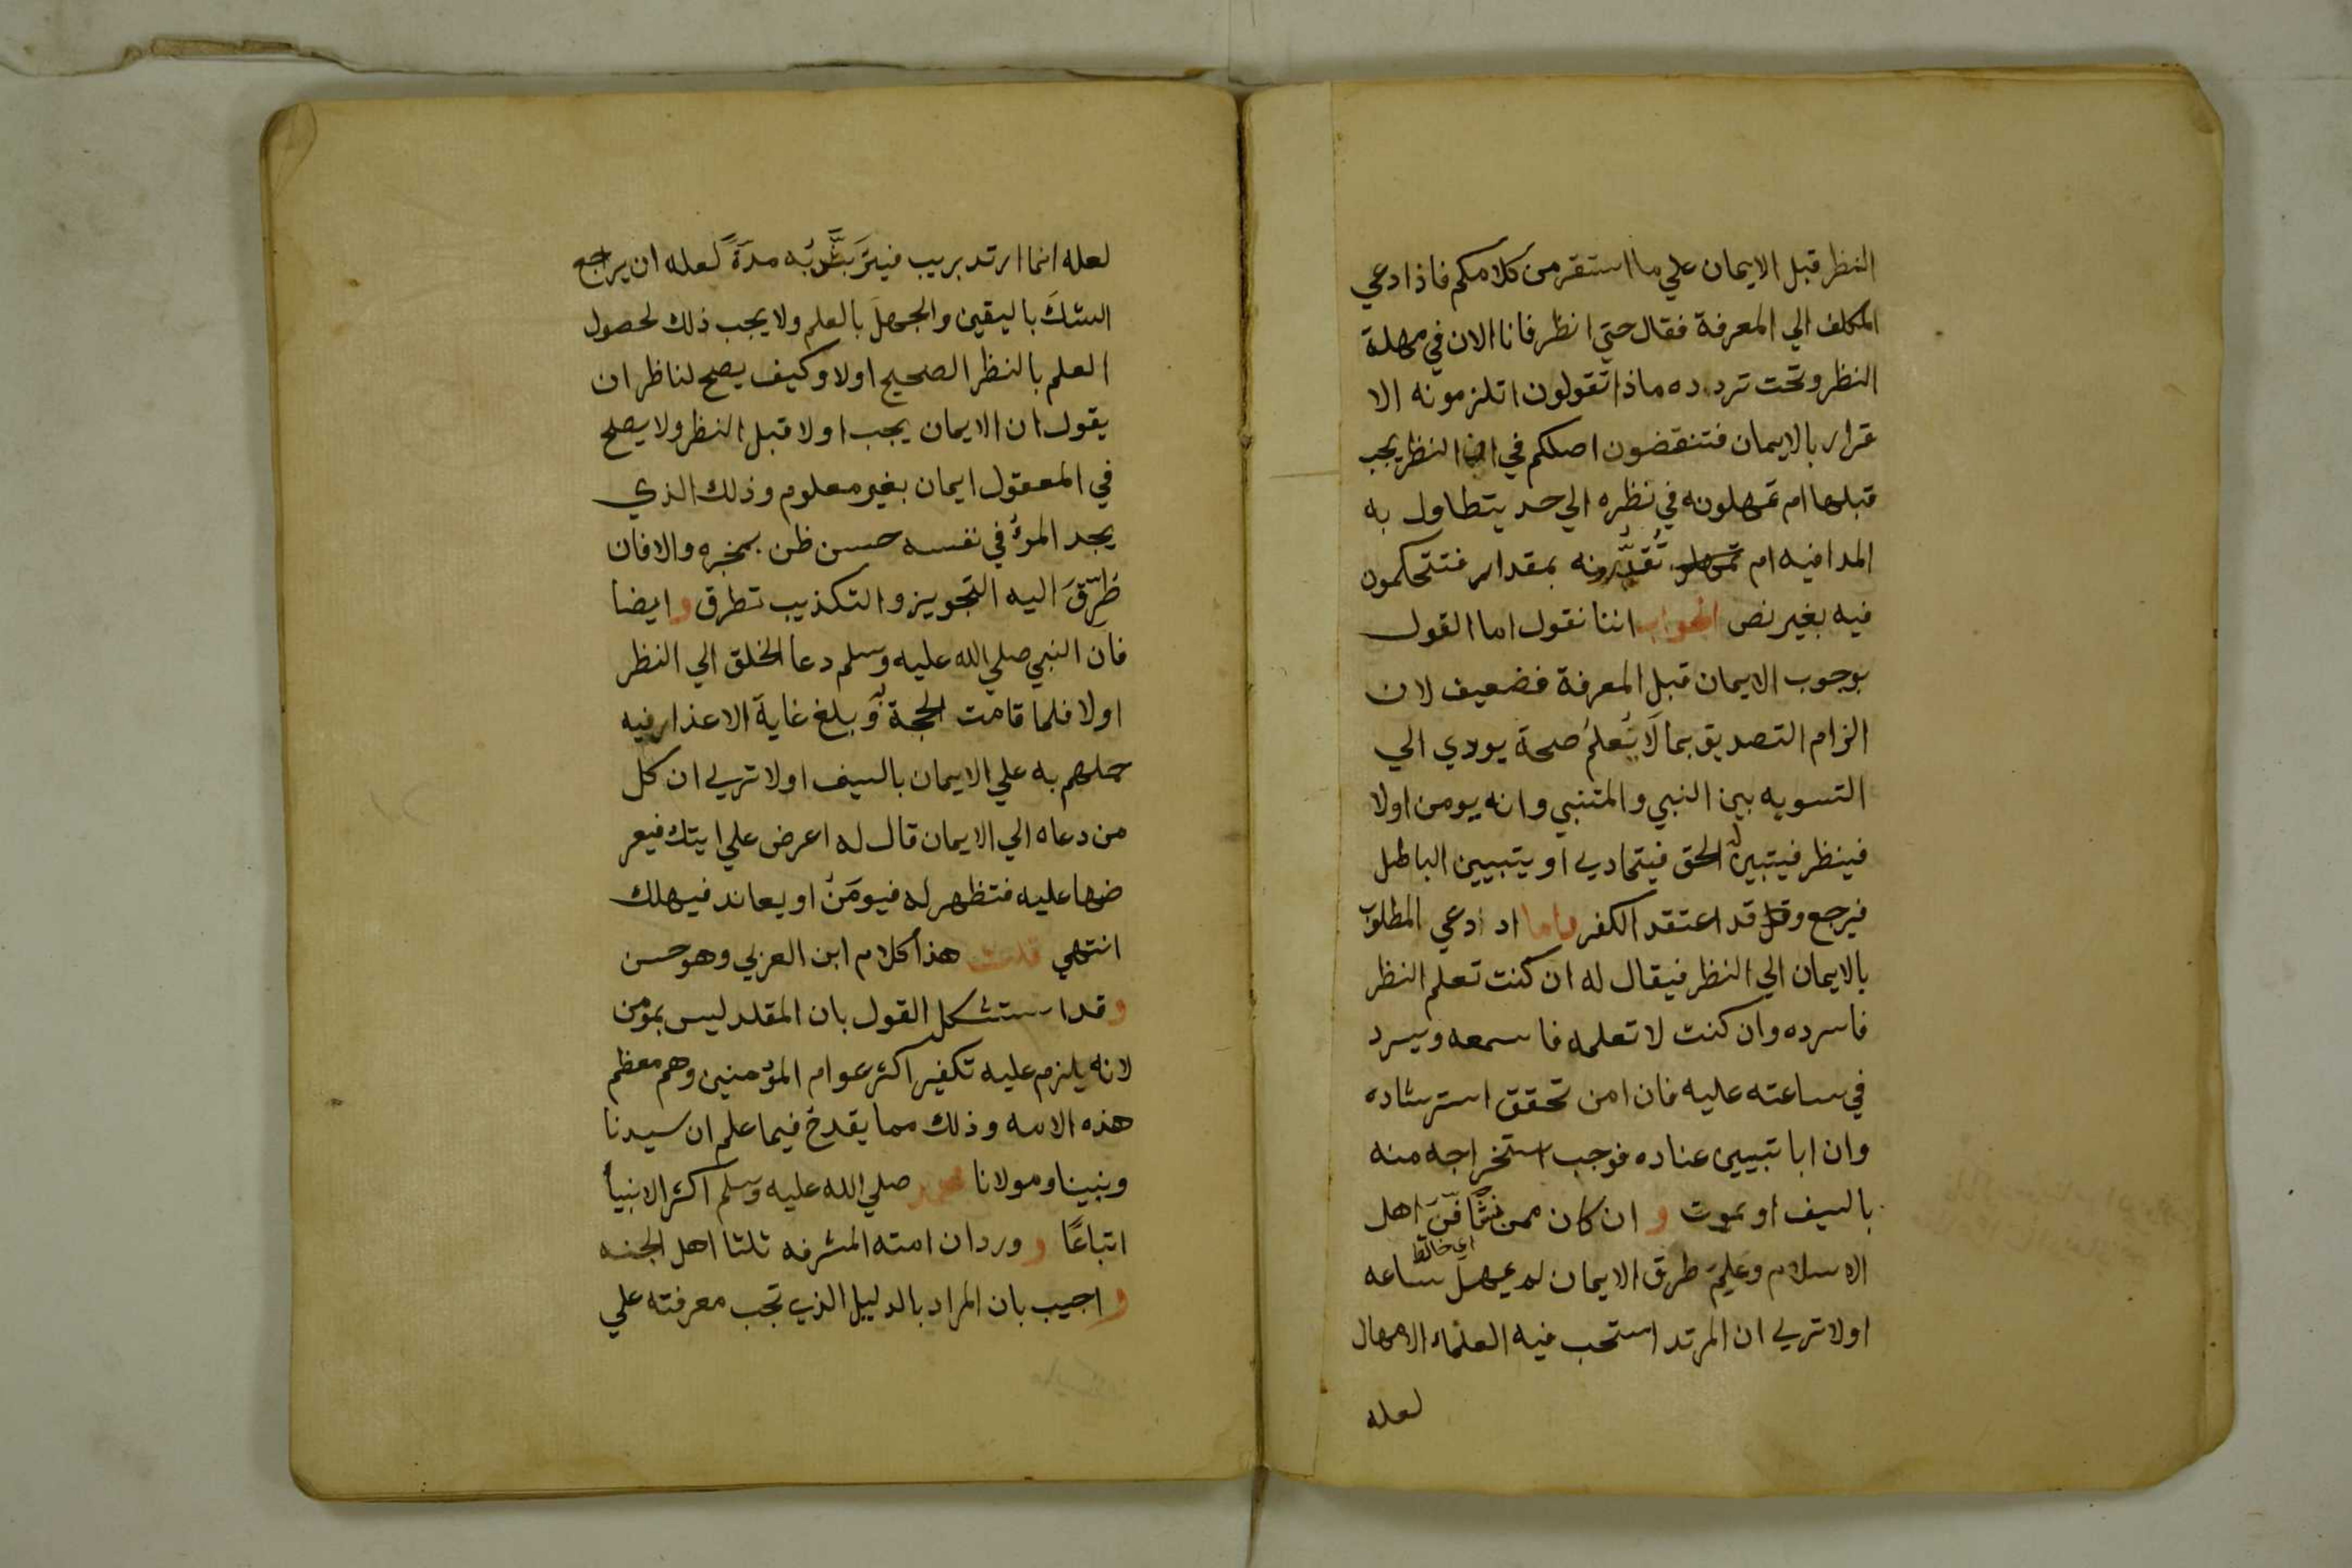 النظر قبل الايمان علي ما استقر من كلامكم فاذا دعي
المكلف الي المعرفة فقال حتي انظر فانا الان في مهلة
النظر وتحت تردده ماذا تقولون اتلزمونه الا
قرار بالايمان فتنقضون اصلكم في ان النظر يجب
قبلها ام تمهلونه في نظره الي حد يتطاول به
المدا فيه ام تُقدِّرونه بمقدار فتتحكمون
فيه بغير نص الجواب اننا نقول اما القول
بوجوب الايمان قبل المعرفة فضعيف لان
الزام التصديق بما لَا يُعلمُ صحة يودي الي
التسويه بين النبي والمتنبي وانه يومن اولا
فينظر فيتبين له الحق فيتمادي او يتبيين الباطل
فيرجع وقد اعتقد الكفر واما اد ادعي المطلوب
بالايمان الي النظر فيقال له ان كنت تعلم النظر
فاسرده وان كنت لا تعلمه فاسمعه ويسرد
في ساعته عليه فان امن تحقق استرشاده
وان ابا تبيين عناده فوجب استخراجه منه
بالسيف او يموت و ان كان ممن ثَافَنَ اهل
اي خالط
الاسلام وعَلِمَ طرق الايمان لم يمهل ساعه
اولا تري ان المرتد استحب فيه العلماء الامهال
لعله
لعله انما ارتد بريب فيتَربَّصُ به مدةً لعله ان يراجع
الشكَ باليقين والجهلَ بالعلم ولا يجب ذلك لحصول
العلم بالنظر الصحيح اولا وكيف يصح لناظر ان
يقول ان الايمان يجب اولا قبل النظر ولا يصلح
في المعقول ايمان بغير معلوم وذلك الذي
يجد المرؤ في نفسه حسن ظن بمخبره والا فان
طرّقَ اليه التجويز والتكذيب تطرق و ايضا
فان النبي صلي الله عليه وسلم دعا الخلق الي النظر
اولا فلما قامت الحجة به وبلغ غاية الاعذار فيه
حملهم به علي الايمان بالسيف اولا تري ان كل
من دعاه الي الايمان قال له اعرض علي ايتك فيعر
ضها عليه فتظهر له فيومَنُ او يعاند فيهلك
انتهي قلت هذا كلام ابن العربي وهو حسن
و قد استشكل القول بان المقلد ليس بمومن
لانه يلزم عليه تكفير اكثر عوام المؤمنين وهم معظم
هذه الامه وذلك مما يقدح فيما علم ان سيدنا
ونبينا ومولانا محمد صلي الله عليه وسلم اكثر الانبيا
اتباعًا و ورد ان امته المشرفه ثلثا اهل الجنه
و اجيب بان المراد بالدليل الذي تجب معرفته علي